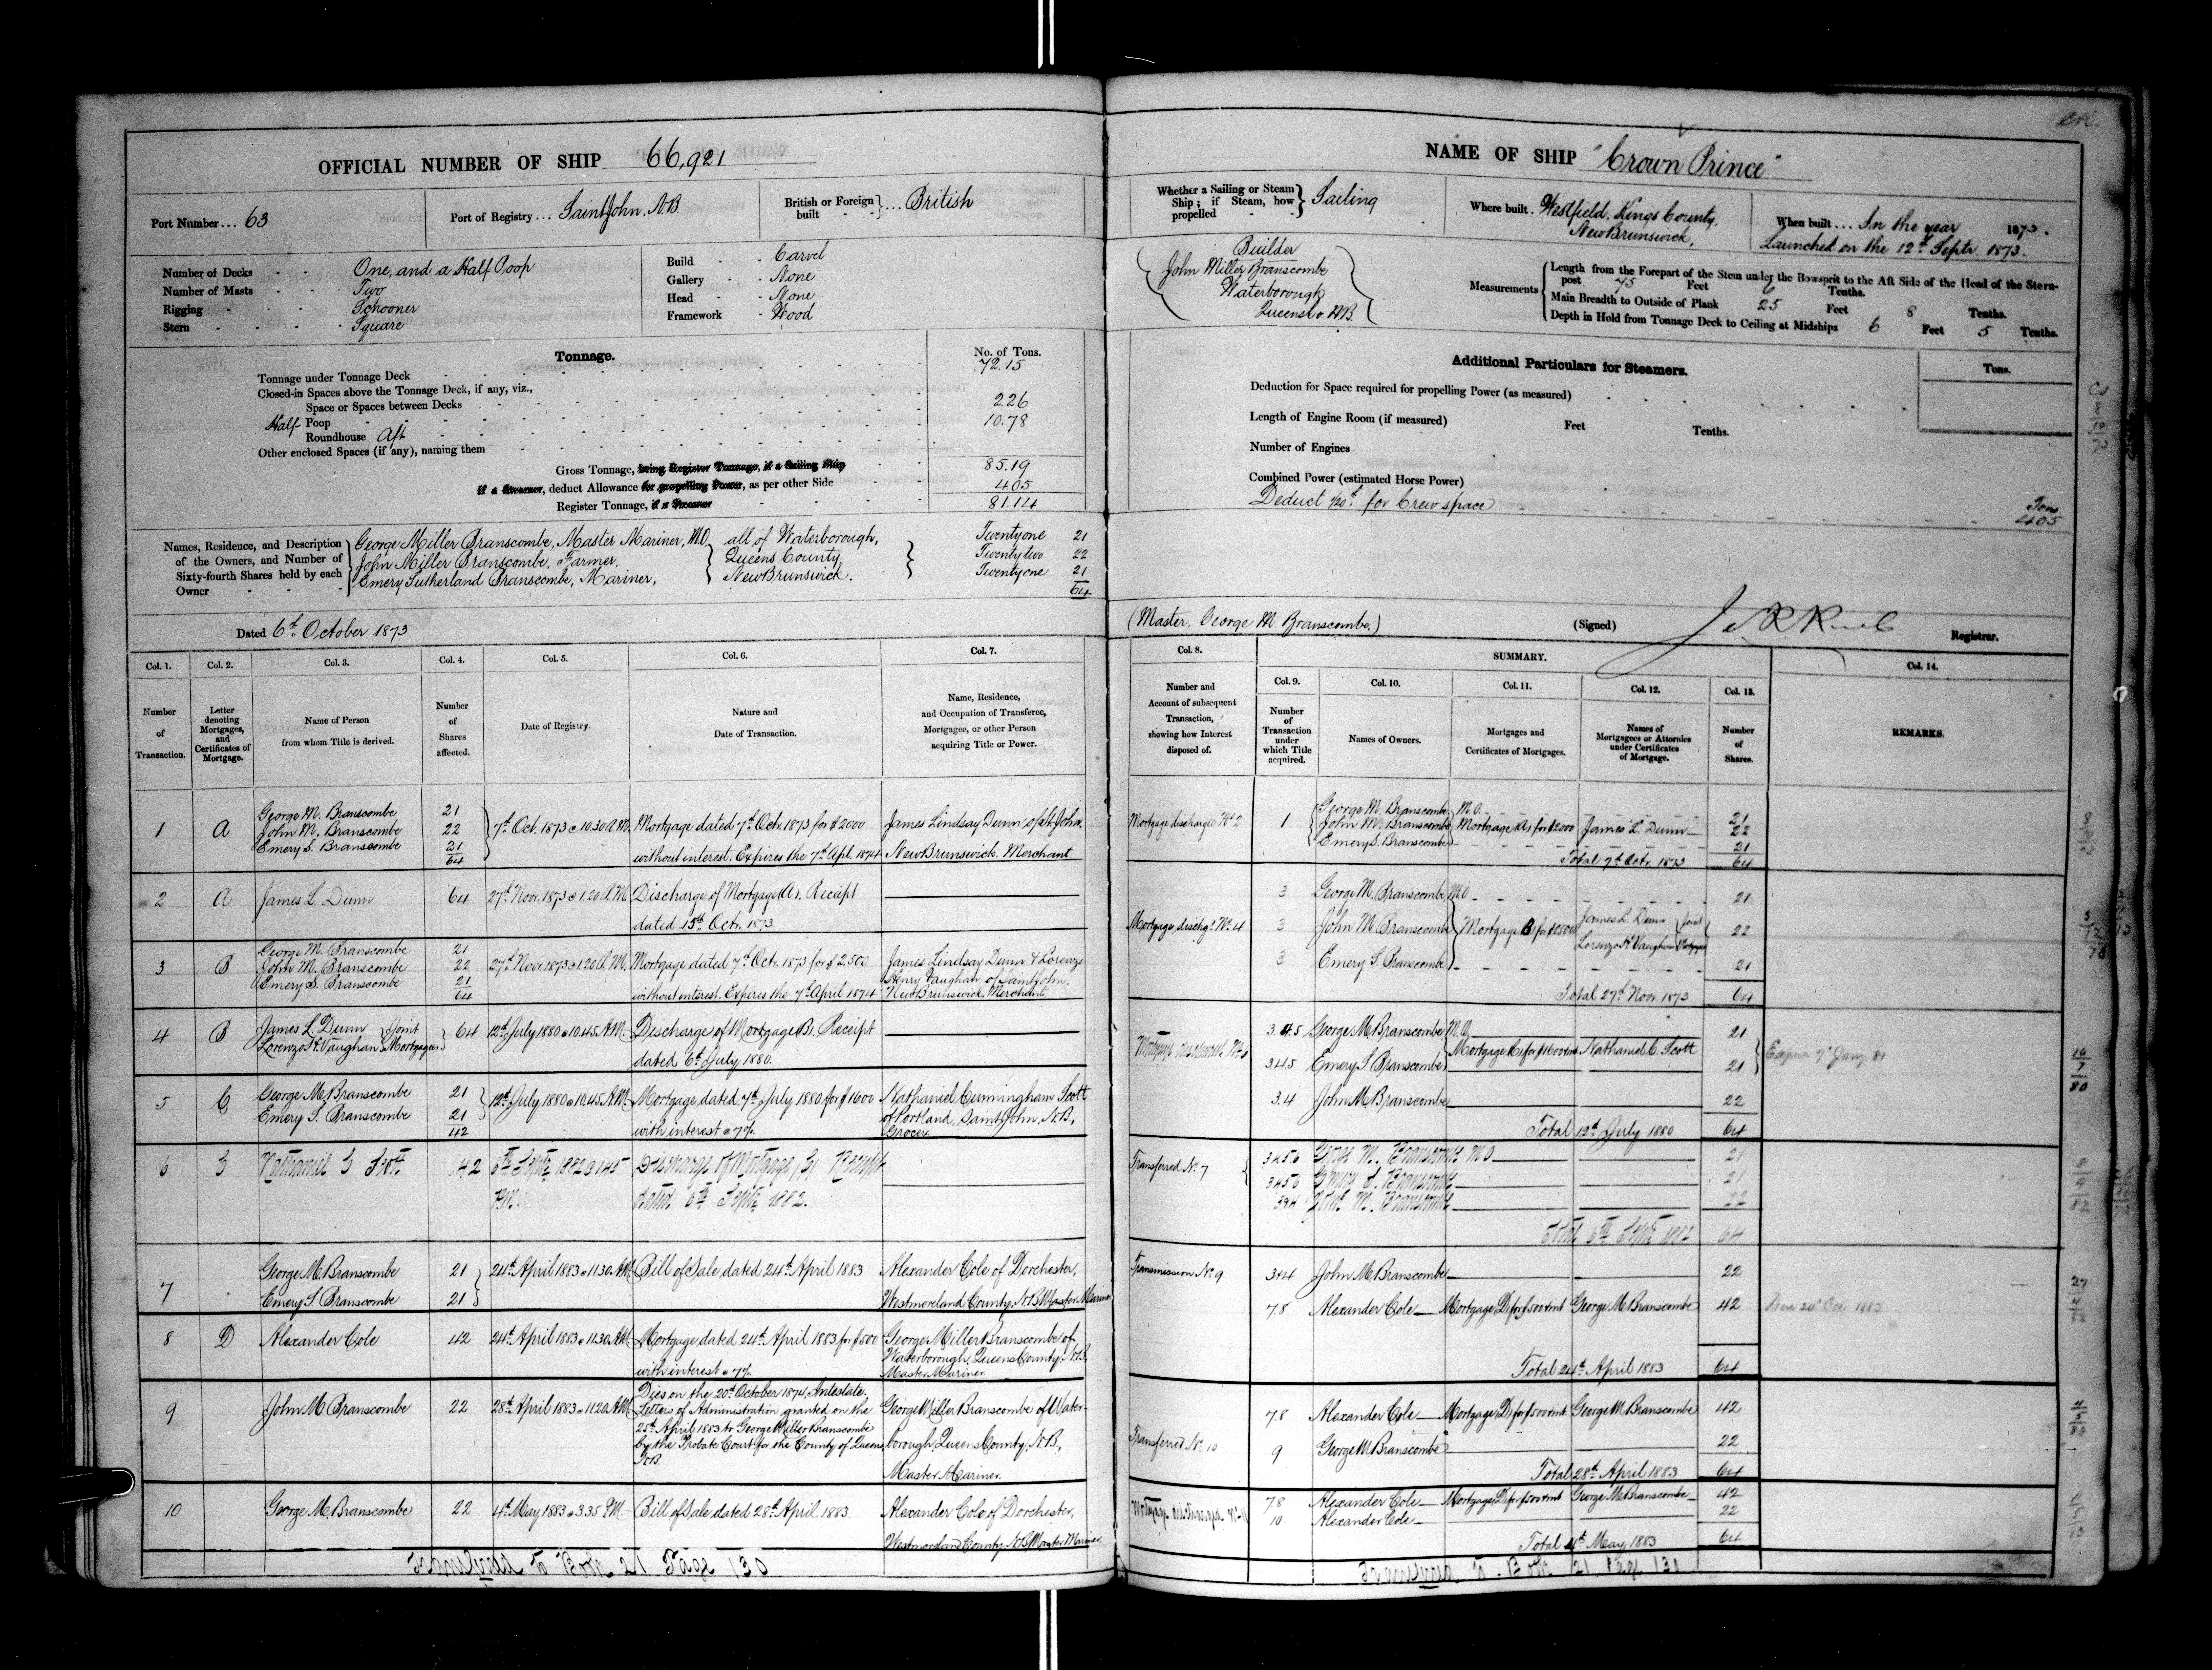 OFFICIAL NUMBER OF SHIP 66,921
Port Number ... 63
Port of Registry ... Saint John, N.B.
British or Foreign built ... British
Number of Decks One, and a Half Poop
Number of Masts Two
Rigging Schooner
Stern Square
Build Carvel
Gallery None
Head None
Framework Wood
Tonnage.
No. of Tons.
Tonnage under Tonnage Deck 72.15
Closed-in Spaces above the Tonnage Deck, if any, viz.,
Space or Spaces between Decks
Half Poop 2.26
Roundhouse Aft 10.78
Other enclosed Spaces (if any), naming them
Gross Tonnage, being Register Tonnage, if a Sailing Ship 85.19
if a Steamer, deduct Allowance for propelling Power, as per other Side 4.05
Register Tonnage, if a Steamer 81.14
Names, Residence, and Description of the Owners, and Number of Sixty-fourth Shares held by each Owner
George Miller Branscombe, Master Mariner, M.O. Twentyone 21
John Miller Branscombe, Farmer, Twentytwo 22
Emery Sutherland Branscombe, Mariner, Twentyone 21
all of Waterborough, Queens County, New Brunswick.
64
Dated 6th October 1873
Col. 1. Col. 2. Col. 3. Col. 4. Col. 5. Col. 6. Col. 7.
Number of Transaction.
Letter denoting Mortgages, and Certificates of Mortgage.
Name of Person from whom Title is derived.
Number of Shares affected.
Date of Registry.
Nature and Date of Transaction.
Name, Residence, and Occupation of Transferee, Mortgagee, or other Person acquiring Title or Power.
1 A George M. Branscombe 21
John M. Branscombe 22
Emery S. Branscombe 21
64
7th Oct. 1873 @ 10.30 A.M. Mortgage dated 7th Oct. 1873 for $2000
without interest. Expires the 7th Apl. 1874
James Lindsay Dunn of St John, New Brunswick. Merchant
2 A James L. Dunn 64 27th Novr. 1873 @ 1.20 A.M. Discharge of Mortgage A. Receipt
dated 15th Oct. 1873
3 B George M. Branscombe 21
John M. Branscombe 22
Emery S. Branscombe 21
64
27th Novr 1873 @ 1.20 A.M. Mortgage dated 7th Oct. 1873 for $2500
without interest. Expires the 7th April 1874
James Lindsay Dunn & Lorenzo
Henry Vaughan of Saint John,
New Brunswick. Merchants
4 B James L. Dunn
Lorenzo H. Vaughan Joint Mortgagees 64 12th July 1880 @ 10.45 A.M. Discharge of Mortgage B. Receipt
dated 6th July 1880.
5 C George M. Branscombe 21
Emery S. Branscombe 21
42
12th July 1880 @ 10.45 A.M. Mortgage dated 7th July 1880 for $1600
with interest @ 7%.
Nathaniel Cunningham Scott
of Portland, Saint John, N.B.,
Grocer
6 C Nathaniel C Scott 42 6th Septr 1882 @ 1.45 P.M. Discharge of Mortgage (C) Receipt
dated 6th Septr 1882.
7 George M. Branscombe 21
Emery S. Branscombe 21
24th April 1883 @ 11.30 A.M. Bill of Sale, dated 24th April 1883
Alexander Cole of Dorchester,
Westmoreland County, N.B. Master Mariner
8 D Alexander Cole 42 24th April 1883 @ 11.30 A.M. Mortgage dated 24th April 1883 for $500
with interest @ 7%.
George Miller Branscombe of
Waterborough, Queens County, N.B.,
Master Mariner
9 John M. Branscombe 22 28th April 1883 @ 11.20 A.M.
Dies on the 20th October 1874, Intestate.
Letters of Administration granted on the
25th April 1883 to George Miller Branscombe
by the Probate Court for the County of Queens
N.B.
George Miller Branscombe of Water-
borough, Queens County, N.B.,
Master Mariner.
10 George M. Branscombe 22 4th May 1883 @ 3.35 P.M. Bill of Sale, dated 28th April 1883
Alexander Cole of Dorchester,
Westmorland County, N.B. Master Mariner.
Transferred to Book 21 Page 130
NAME OF SHIP "Crown Prince"
Whether a Sailing or Steam Ship; if Steam, how propelled Sailing
Where built. Westfield, Kings County, New Brunswick,
When built ... In the year 1873.
Launched on the 12th Septr. 1873.
Builder
John Miller Branscombe
Waterborough
Queens Co N.B.
Measurements
Length from the Forepart of the Stem under the Bowsprit to the Aft Side of the Head of the Stern-
post 75 Feet 6 Tenths.
Main Breadth to Outside of Plank 25 Feet 8 Tenths.
Depth in Hold from Tonnage Deck to Ceiling at Midships 6 Feet 5 Tenths.
Additional Particulars for Steamers.
Tons.
Deduction for Space required for propelling Power (as measured)
Length of Engine Room (if measured) Feet Tenths.
Number of Engines
Combined Power (estimated Horse Power)
Deduct 1/20th for Crew space Tons 4.05
(Master, George M. Branscombe.)
(Signed)
Registrar.
Col. 8. SUMMARY. Col. 14.
Col. 9. Col. 10. Col. 11. Col. 12. Col. 13.
Number and Account of subsequent Transaction, showing how Interest disposed of.
Number of Transaction under which Title acquired.
Names of Owners.
Mortgages and Certificates of Mortgages.
Names of Mortgagees or Attornies under Certificates of Mortgage.
Number of Shares.
REMARKS.
Mortgage discharged No 2 1 George M. Branscombe M.O. 21
John M. Branscombe Mortgage A for $2000 James L. Dunn 22
Emery S. Branscombe 21
Total 7th Octr. 1873 64
3 George M. Branscombe M.O 21
Mortgage dischgd No. 4 3 John M. Branscombe Mortgage B for $2500 James L. Dunn
Lorenzo H. Vaughan Joint Mortgagees 22
3 Emery S. Branscombe 21
Total 27th Novr. 1873 64
3.4.5 George M. Branscombe M.O. 21
Mortgage C for $1600 & Int Nathaniel C. Scott
3.4.5 Emery S. Branscombe 21
Expires 7th Jany. 81
3.4 John M. Branscombe 22
Total 12th July 1880 64
Transferred No. 7 3456 George M. Branscombe M O 21
3456 Emery S. Branscombe 21
3&4 John M. Branscombe 22
Total 6th Septr 1882 64
Transmission No. 9 3&4 John M. Branscombe 22
7.8 Alexander Cole Mortgage D for $500 & Int George M. Branscombe 42
Due 24th Oct. 1883
Total 24th April 1883 64
7.8 Alexander Cole Mortgage D for $500 & Int George M. Branscombe 42
Transferred No. 10 9 George M. Branscombe 22
Total 28th April 1883 64
7.8 Alexander Cole Mortgage D for $500 & Int George M. Branscombe 42
10 Alexander Cole 22
Total 4th May 1883 64
Transferred to Book 21 Page 130